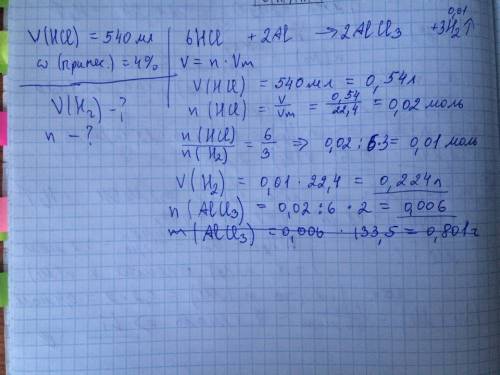 V(HCl) = 540 мл
ω(примес.) = 4%
V(H₂) - ?
n - ?
0,01
6HCl + 2Al → 2AlCl₃ + 3H₂↑
V = n · Vm
V(HCl) = 540 мл = 0,54 л
n(HCl) = V/Vm = 0,54/22,4 = 0,02 моль
n(HCl)/n(H₂) = 6/3 ⇒ 0,02 : 6 · 3 = 0,01 моль
V(H₂) = 0,01 · 22,4 = 0,224 л
n(AlCl₃) = 0,02 : 6 · 2 = 0,006
m(AlCl₃) = 0,006 · 133,5 = 0,801 г